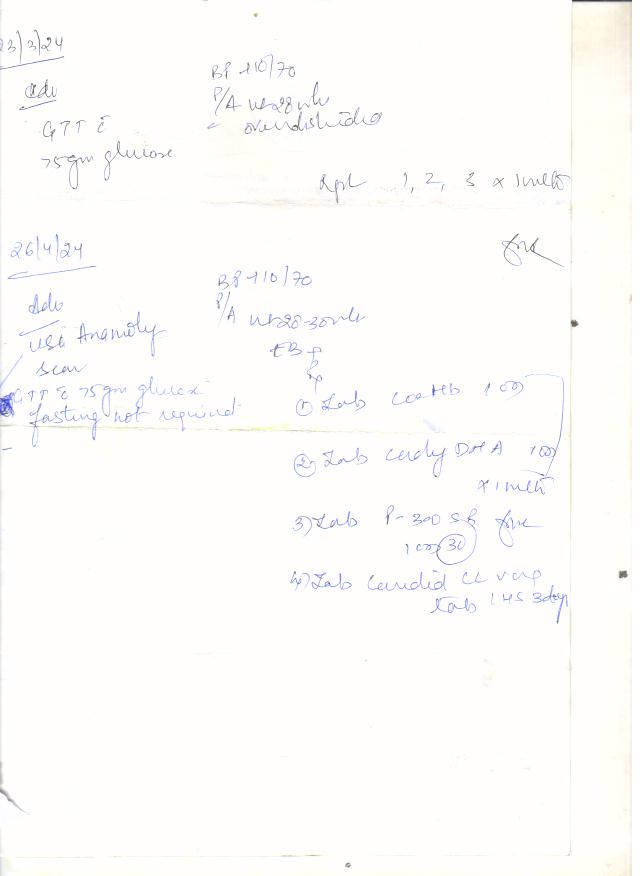 23/3/24
Adv
GTT c̄
75gm glucose
BP 110/70
P/A ut 28 wk
overdistended
Rpt 1, 2, 3 x 1 mth
26/4/24
Adv
USG Anamoly
scan
GTT c̄ 75gm glucose
fasting not required
BP 110/70
P/A ut 28-30 wk
Rx
1) Tab HB 1 OD
2) Tab DHA 1 OD
x 1 mth
3) Tab P-300 SR
1 OD 30
4) Tab Candid CL vag
tab 1 HS 3 days